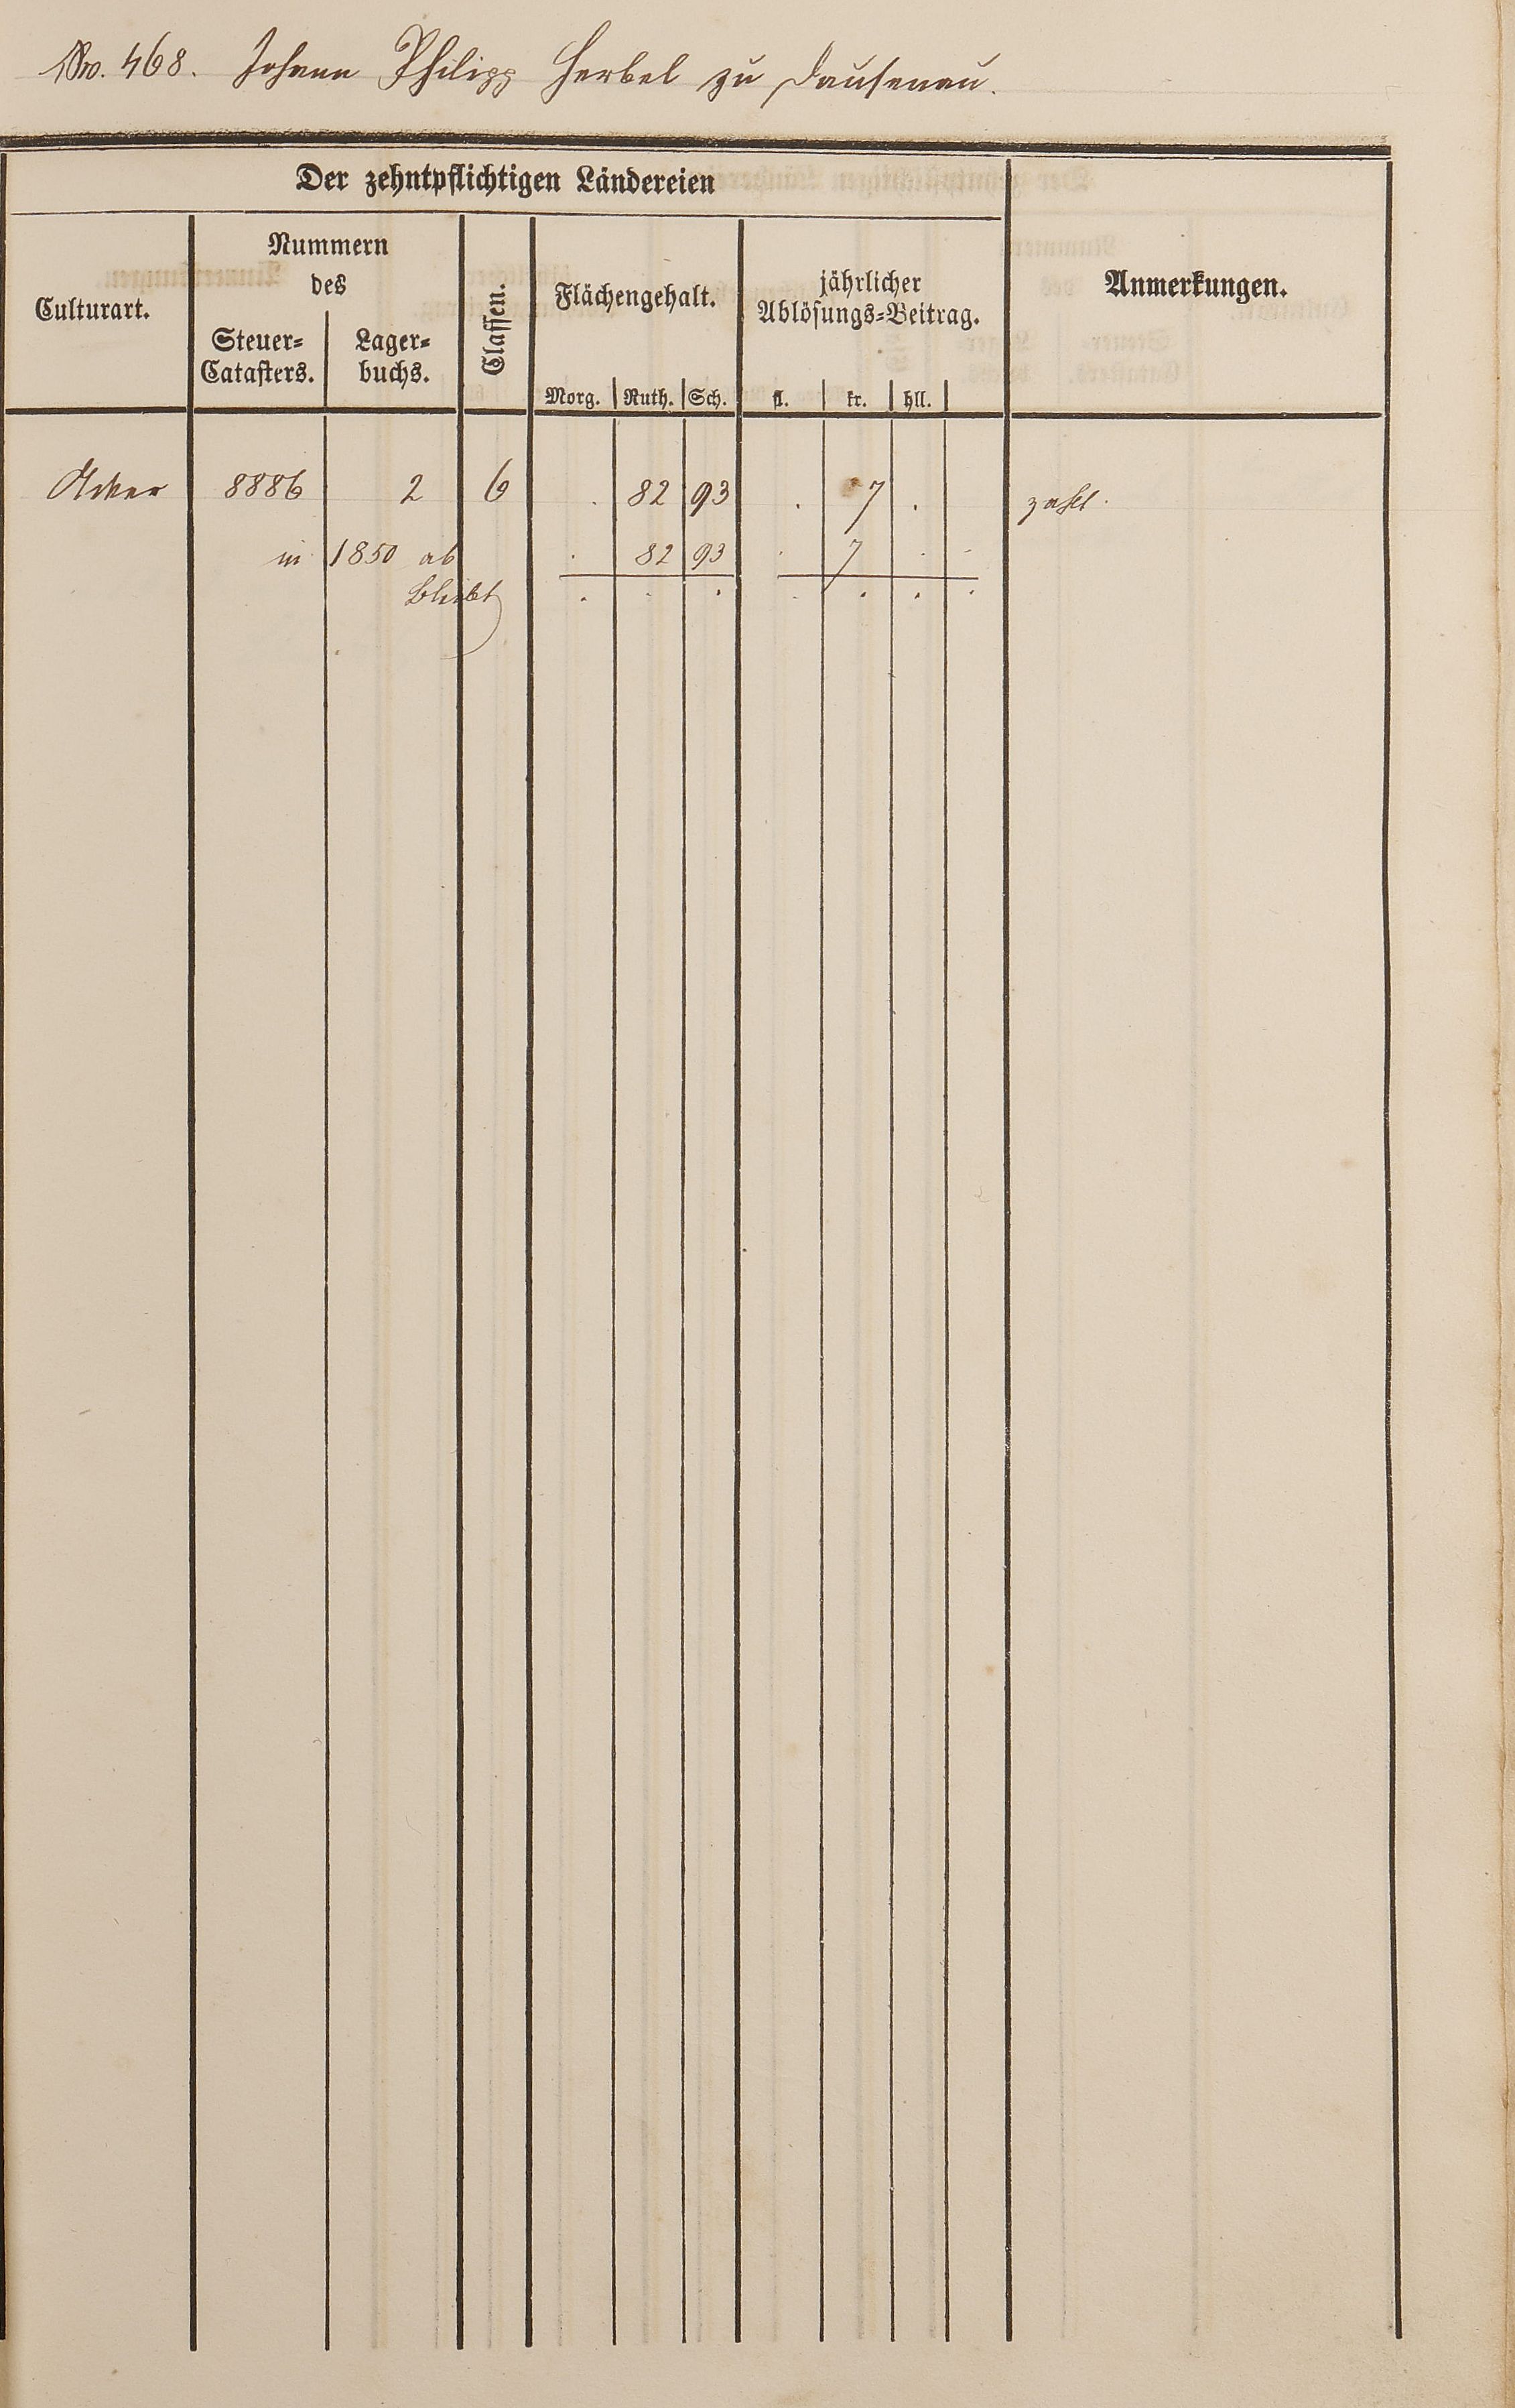 No. 468. Johann Philipp Herbel zu Dausenau.
Der zehntpflichtigen Ländereien
Culturart.
Nummern
des
Steuer=
Catasters.
Lager=
buchs.
Classen.
Flächengehalt.
Morg. Ruth. Sch.
jährlicher
Ablösungs=Beitrag.
fl. kr. hll.
Anmerkungen.
Acker 8886 2 6 . 82 93 . 7 . zahlt.
in 1850 ab . 82 93 . 7 . .
bleibt . . . . . . .